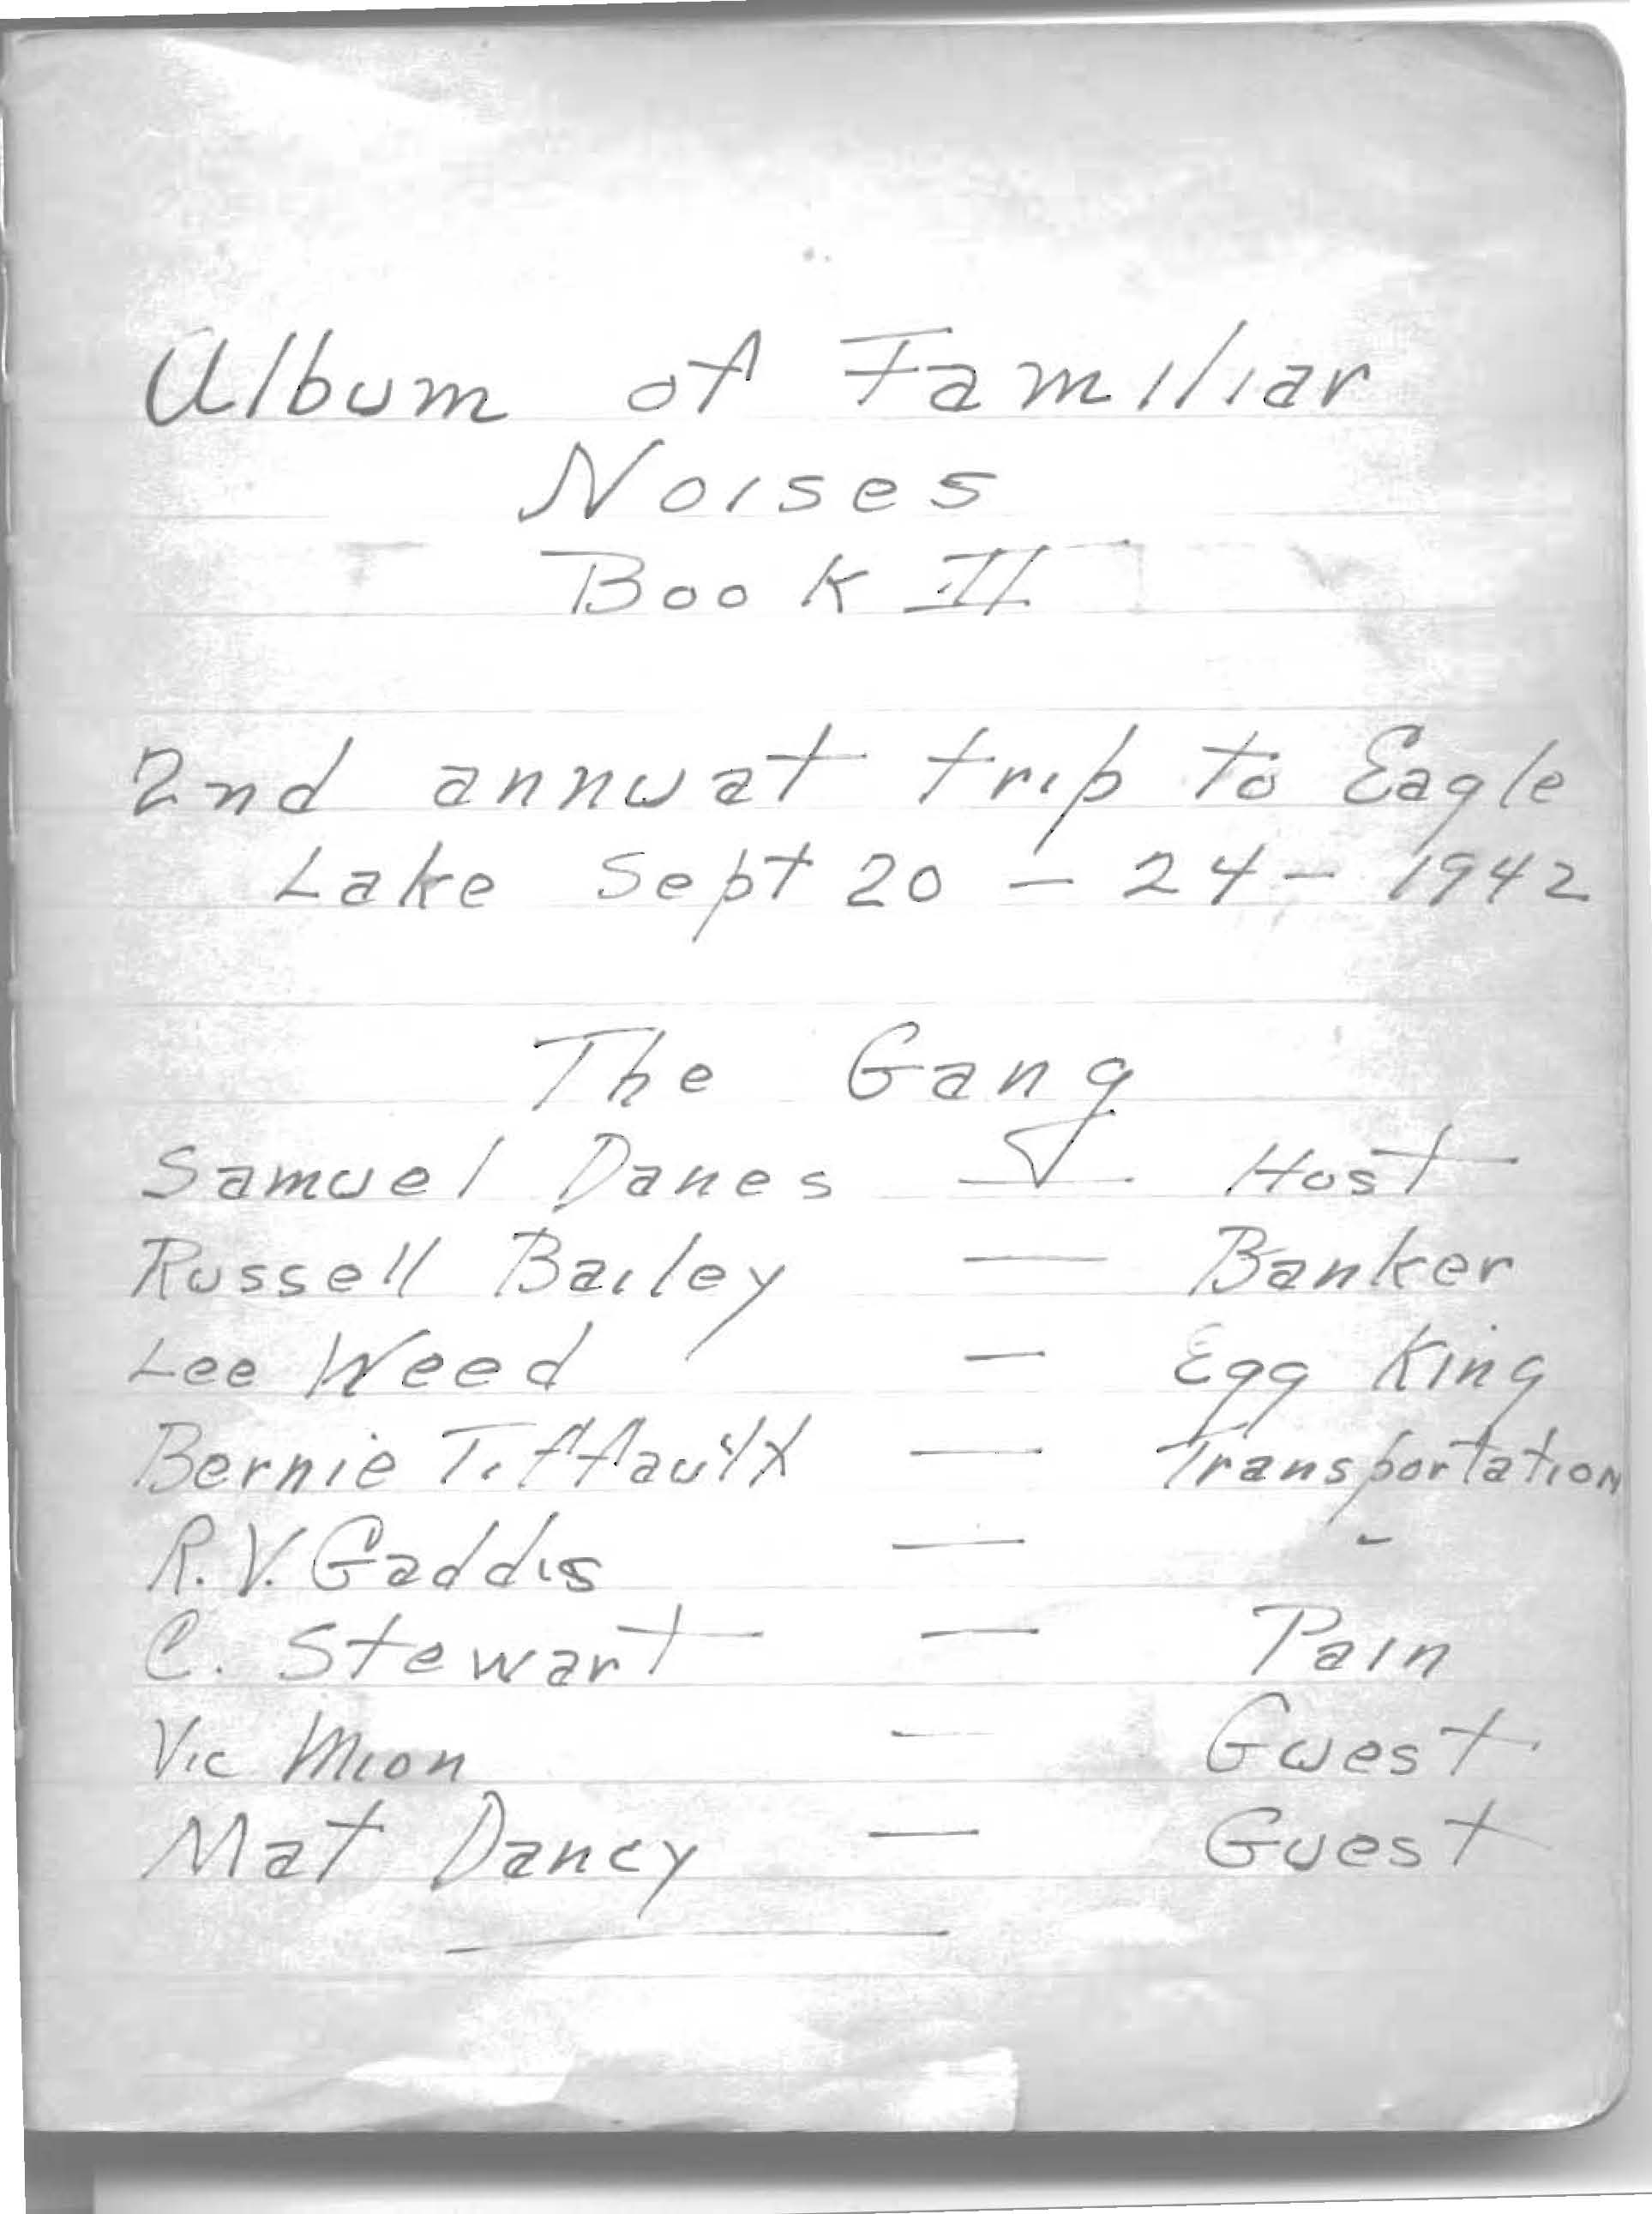 Album of Familiar
Noises
Book II
2nd annuat trip to Eagle
Lake Sept 20 - 24 - 1942
The Gang
Samuel Danes — Host
Russell Bailey — Banker
Lee Weed — Egg King
Bernie — Transportation
R.V. Gaddis — -
C. Stewart — Pain
Vic Mion — Guest
Mat Dancy — Guest